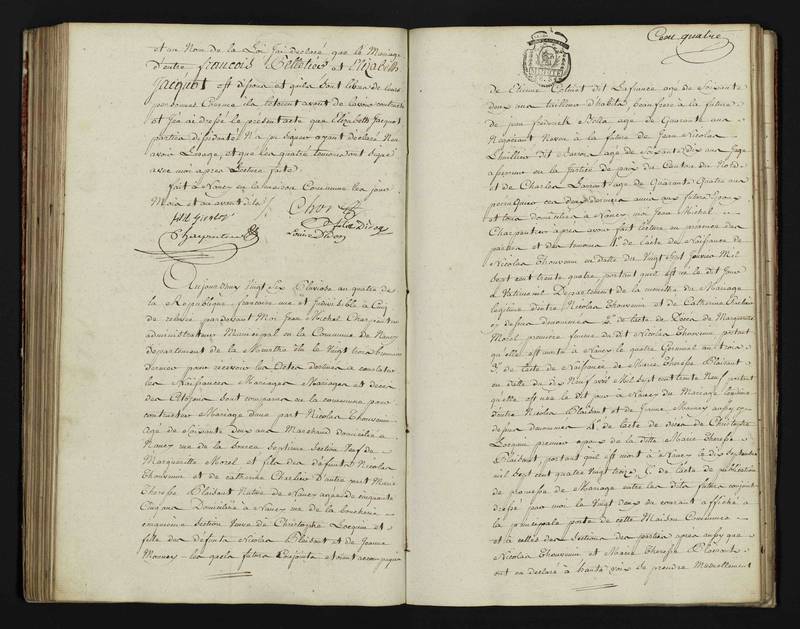 et au Nom de la Loi j'ai déclaré que le Mariage
d'entre françois Pelletier et Elizabeth
Jacquot est dissous et qu'ils sont libres de leurs
personnes Comme ils letoient avant de lavoir contracté
et J'ai dressé le présent acte que Elizabeth Jacquot
partie N'a pu signer ayant déclaré Nen
avoir Lusage, et que les quatre temoins ont signé
avec moi apres Lecture faite.
fait à Nancy en la maison Commune les jour
Mois et an avant dits
Charpentier
Aujourdhuy Vingt Six Pluviose an quatre de
la République françoise une et Indivisible à Cinq
de relevée pardevant Moi Jean Michel Charpentier
administrateur Municipal en la Commune de Nancy
département de la Meurthe élu le Vingt trois brumaire
dernier pour recevoir les Actes destinés à constater
les Naissances Mariages et deces
des Citoyens Sont comparus en la commune pour
contracter Mariage dune part Nicolas Thouvenin
agé de Soixante Deux ans Marchand domicilié a
Nancy rue de la Section Veuf de
Margueritte Morel et fils des défunts Nicolas
Thouvenin et de catherine D'autre part Marie
Therese Plaidant Native de Nancy agée de cinquante
Cinq ans Domiciliée à Nancy rue de la boucherie
cinquieme Section Veuve de Christophe Locquin et
fille des défunts Nicolas Plaidant et de Jeanne
les quels futurs Conjoints etoient accompagnés
Cent quatre
de Etienne Colinet dit Lafrance agé de Soixante
deux ans tailleur d'habits beaufrere à la future
de jean frederick agé de Quarante ans
Négociant Neveu à la future de Jean Nicolas
Lhuillier dit agé de Soixante Dix ans Juge
assesseur en la Justice de paix du Canton du Nord
et de Charles Laurent agé de Quarante Quatre ans
perruquier ces deux derniers amis aux futurs Epoux
et tous domiciliés à Nancy moi Jean Michel
Charpentier après avoir fait lecture en présence des
parties et des temoins 1°. de lacte de Naissance de
Nicolas Thouvenin en datte du Vingt Sept Janvier Mil
Sept cent trente quatre portant qu'il est né le dit jour
à Département de la meurthe du Mariage
légitime d'entre Nicolas Thouvenin et de Catherine
cy dessus denommés 2°. de lacte de Deces de Margueritte
Morel premiere femme du dit Nicolas Thouvenin portant
qu'elle est morte à Nancy le quatre Germinal an trois
3°. de lacte de Naissance de Marie Therese Plaidant
en datte du dix Neuf avril Mil Sept cent trente Neuf portant
quelle est née le dit jour à Nancy du Mariage légitime
d'entre Nicolas Plaidant et de Jeanne aussy cy
dessus denommés 4°. de lacte de deces de Christophe
Locquin premier epoux de la ditte Marie Therese
Plaidant, portant quil est mort à Nancy le dix Septembre
mil Sept cent quatre Vingt treize, 5°. de lacte de publication
de promesse de Mariage entre les dits futurs conjoints
dressé par moi le Vingt Deux du courant affiché à
la principale porte de cette Maison Commune
et à celles des Sections des parties apres aussy que
Nicolas Thouvenin et Marie Therese Plaidant
ont eu declaré à haute voix se prendre Mutuellement